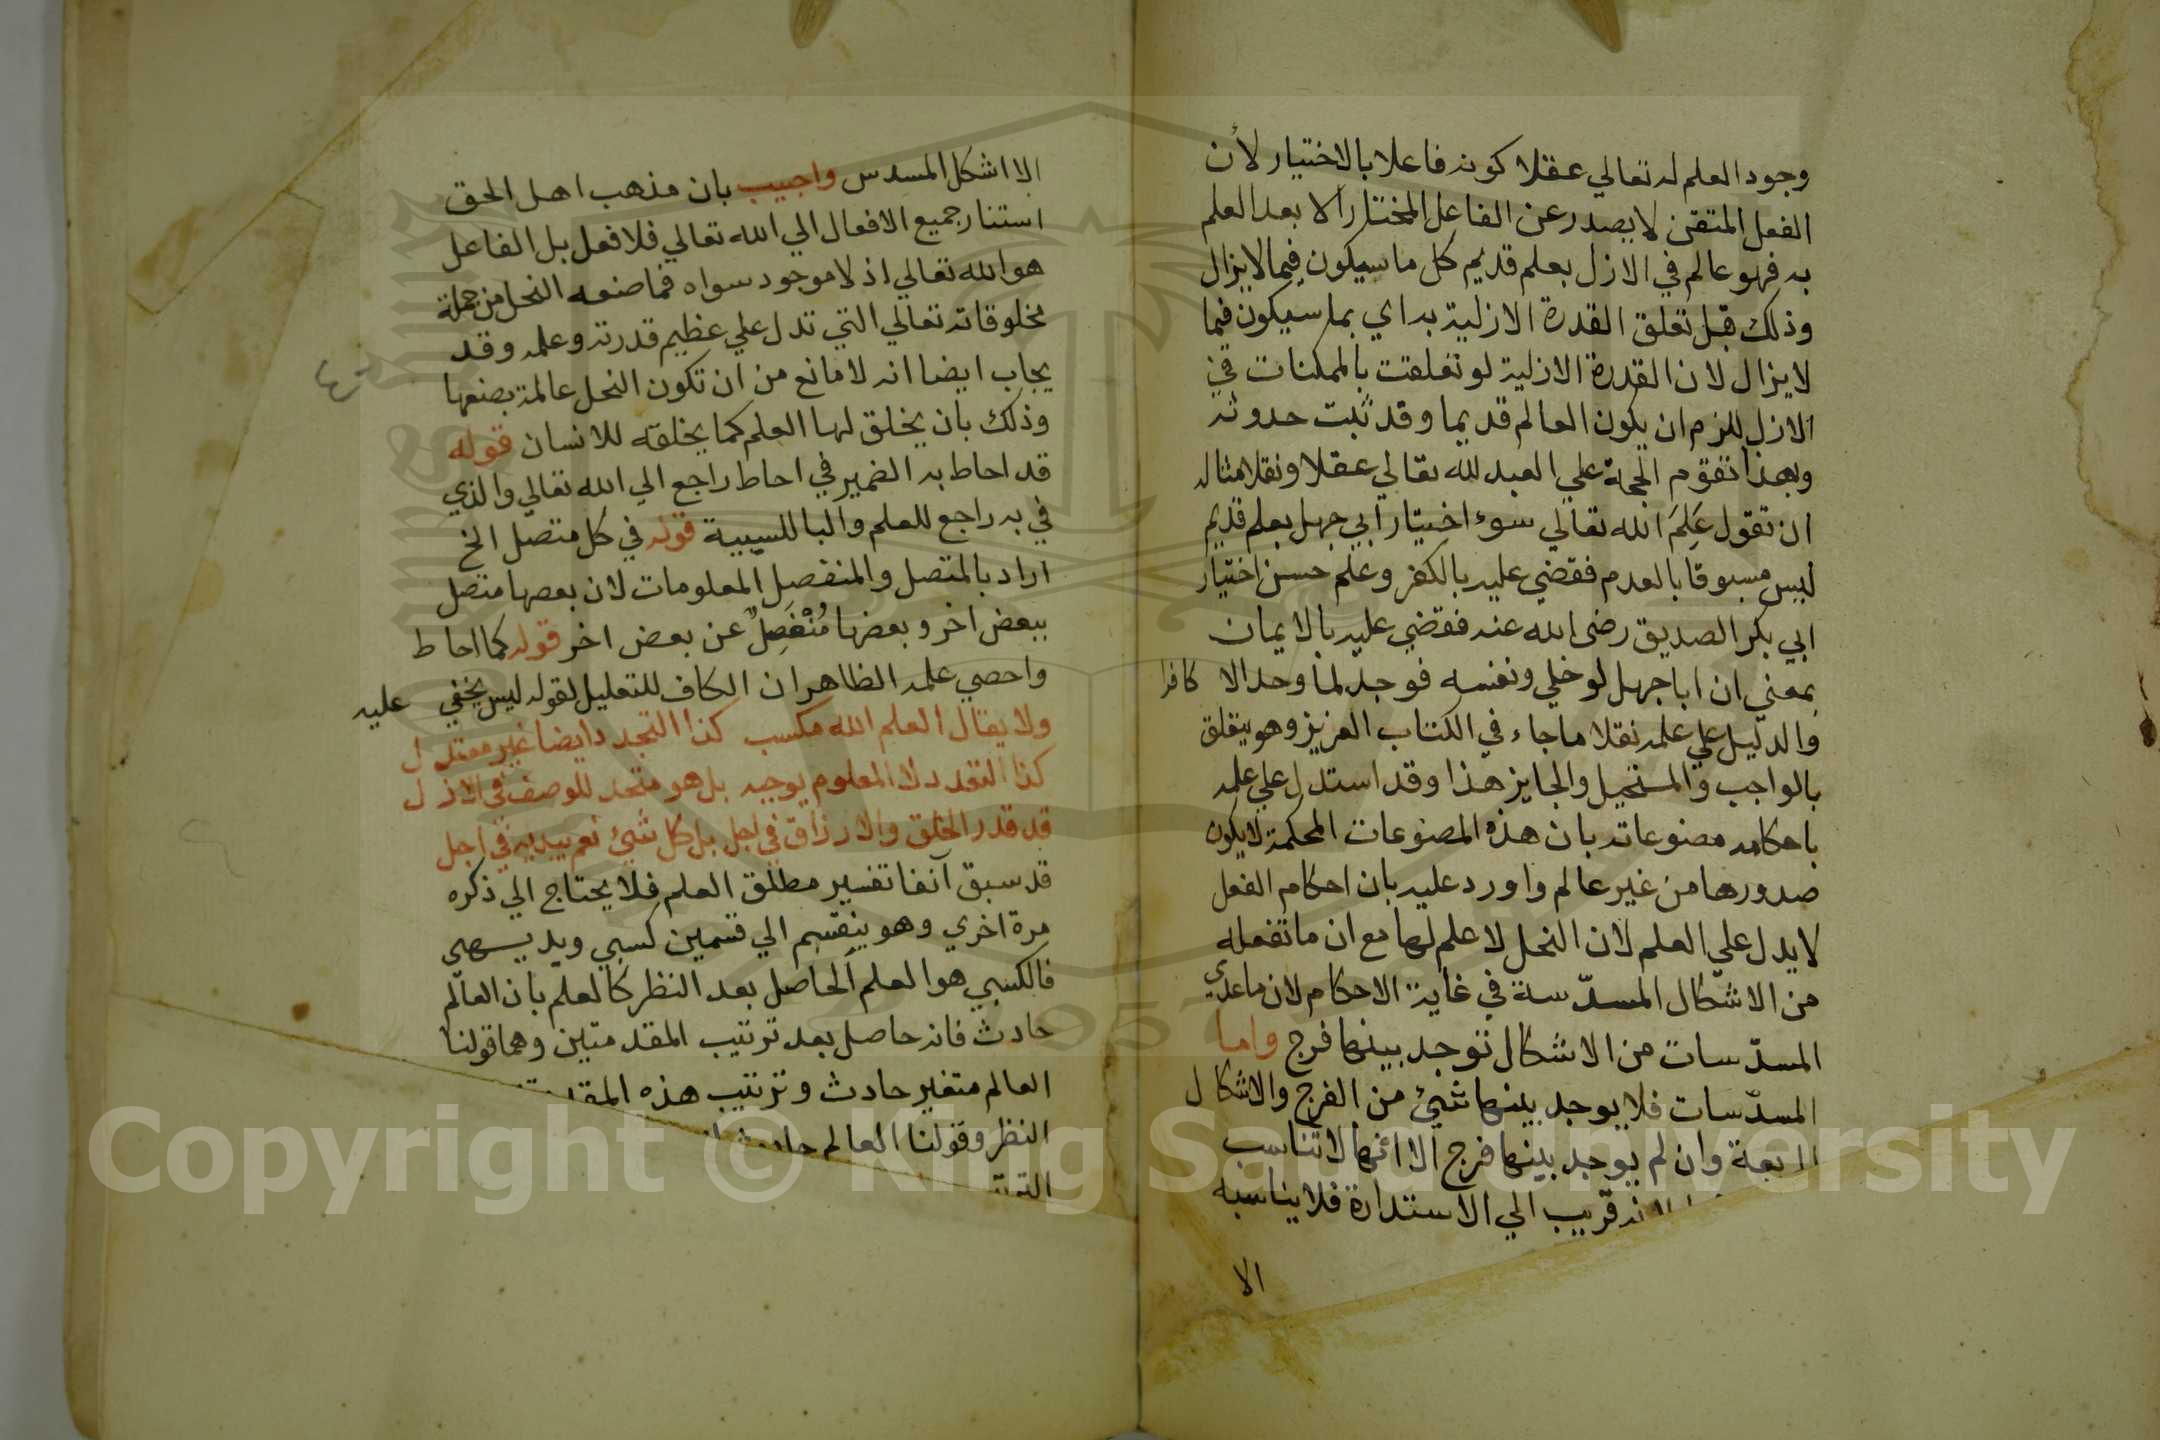 وجود العلم له تعالي عقلا كونه فاعلا بالاختيار لأن
الفعل المتقن لا يصدر عن الفاعل المختار الا بعد العلم
به فهو عالم في الازل بعلم قديم كل ما سيكون فيما لا يزال
وذلك قبل تعلق القدرة الازلية به اي بما سيكون فيما
لا يزال لان القدرة الازلية لو تعلقت بالممكنات في
الازل للزم ان يكون العالم قديما وقد ثبت حدوثه
وبهذا تقوم الحجة علي العبد لله تعالي عقلا ونقلا مثاله
ان تقول عَلِمَ الله تعالي سوء اختيار ابي جهل بعلم قديم
ليس مسبوقا بالعدم فقضي عليه بالكفر وعلم حسن اختيار
ابي بكر الصديق رضى الله عنه فقضي عليه بالايمان
بمعني ان ابا جهل لو خلي ونفسه فوجد لما وجد الا كافرا
والدليل علي علمه نقلا ما جاء في الكتاب العزيز وهو يتعلق
بالواجب والمستحيل والجايز هذا وقد استدل علي علمه
باحكامه مصنوعاته بان هذه المصنوعات المحكمة لا يكون
صدورها من غير عالم واورد عليه بان احكام الفعل
لا يدل علي العلم لان النحل لا علم لها مع ان ما تفعله
من الاشكال المسدّسة في غاية الاحكام لان ما عدي
المسدّسات من الاشكال توجد بينها فرج واما
المسدّسات فلا يوجد بينها شيئ من الفرج والاشكال
وان لم يوجد بينها فرج الا انها لا تناسب
لانه قريب الي الاستدارة فلا يناسبه
الا
الا اشكل المسدس واجيب بان مذهب اهل الحق
استنار جميع الافعال الي الله تعالي فلا فعل بل الفاعل
هو الله تعالي اذ لا موجود سواه فما صنعه النحل من جملة
مخلوقاته تعالي التي تدل علي عظيم قدرته وعلمه وقد
يجاب ايضا انه لا مانع من ان تكون النحل عالمة بصنعها
وذلك بان يخلق لها العلم كما يخلقه للانسان قوله
قد احاط به الضمير في احاط راجع الي الله تعالي والذي
في به راجع للعلم والبا للسببية قوله في كل متصل الخ
اراد بالمتصل والمنفصل المعلومات لان بعضها متصل
ببعض اخر وبعضها مُنْفَصِلٌ عن بعض اخر قوله كما احاط
واحصي علمه الظاهر ان الكاف للتعليل لقوله ليس يخفي عليه
ولا يقال العلم الله مكسب كذا التجدد ايضا غير معتدل
كذا التعدد لا المعلوم يوجبه بل هو متحد للوصف في الازل
قد قدر الخلق والارزاق في اجل بل كل شيئ نعم يبديه في اجل
قد سبق آنفا تفسير مطلق العلم فلا يحتاج الي ذكره
مرة اخري وهو ينقسم الي قسمين كسبي وبديهى
فالكسبي هو العلم الحاصل بعد النظر كالعلم بان العالم
حادث فانه حاصل بعد ترتيب المقدمتين وهما قولنا
العالم متغير حادث وترتيب هذه
النظر وقولنا العالم
Copyright © King Saud University